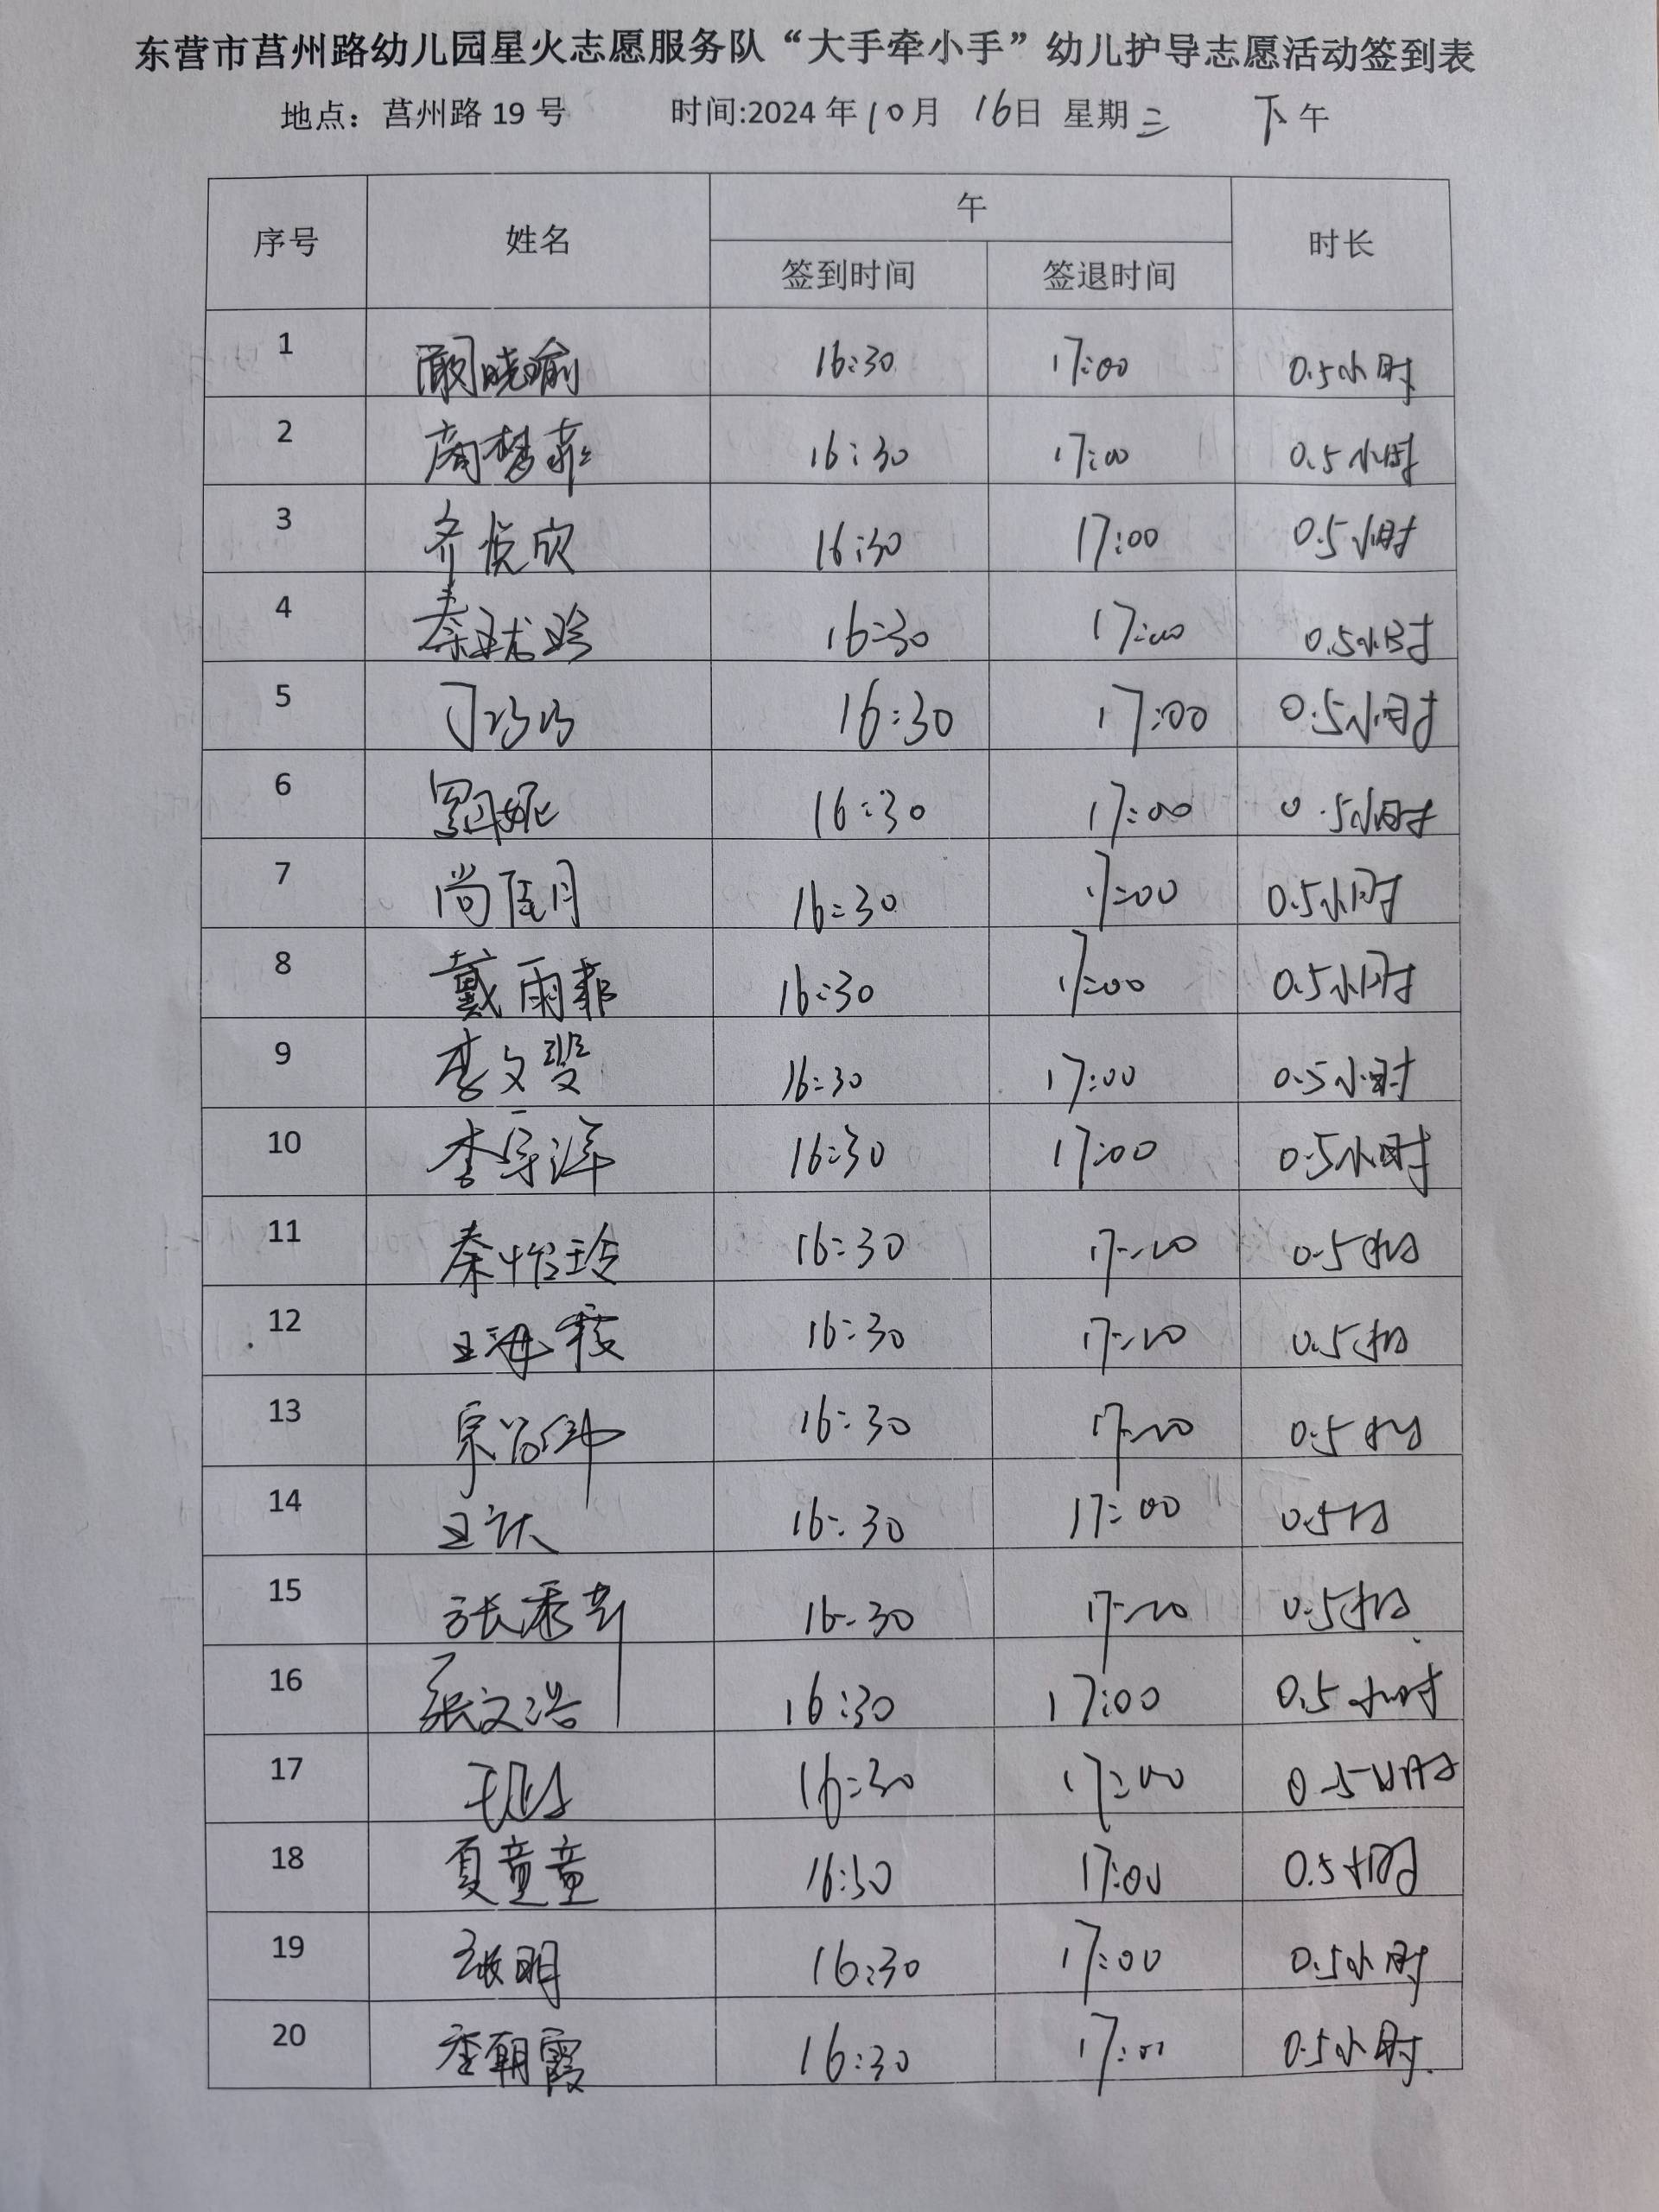 东营市莒州路幼儿园星火志愿服务队“大手牵小手”幼儿护导志愿活动签到表
地点：莒州路 19 号 时间:2024 年 10 月 16 日 星期 三 下 午
序号 姓名 午 时长
签到时间 签退时间
1 16:30 17:00 0.5小时
2 周梦菲 16:30 17:00 0.5小时
3 齐悦欣 16:30 17:00 0.5小时
4 秦 16:30 17:00 0.5小时
5 16:30 17:00 0.5小时
6 16:30 17:00 0.5小时
7 尚佳月 16:30 17:00 0.5小时
8 戴雨菲 16:30 17:00 0.5小时
9 李文斐 16:30 17:00 0.5小时
10 李宗洋 16:30 17:00 0.5小时
11 秦怡玲 16:30 17:00 0.5小时
12 王海霞 16:30 17:00 0.5小时
13 16:30 17:00 0.5小时
14 16:30 17:00 0.5小时
15 张 16:30 17:00 0.5小时
16 张文浩 16:30 17:00 0.5小时
17 16:30 17:00 0.5小时
18 夏童童 16:30 17:00 0.5小时
19 张明 16:30 17:00 0.5小时
20 朝霞 16:30 17:00 0.5小时